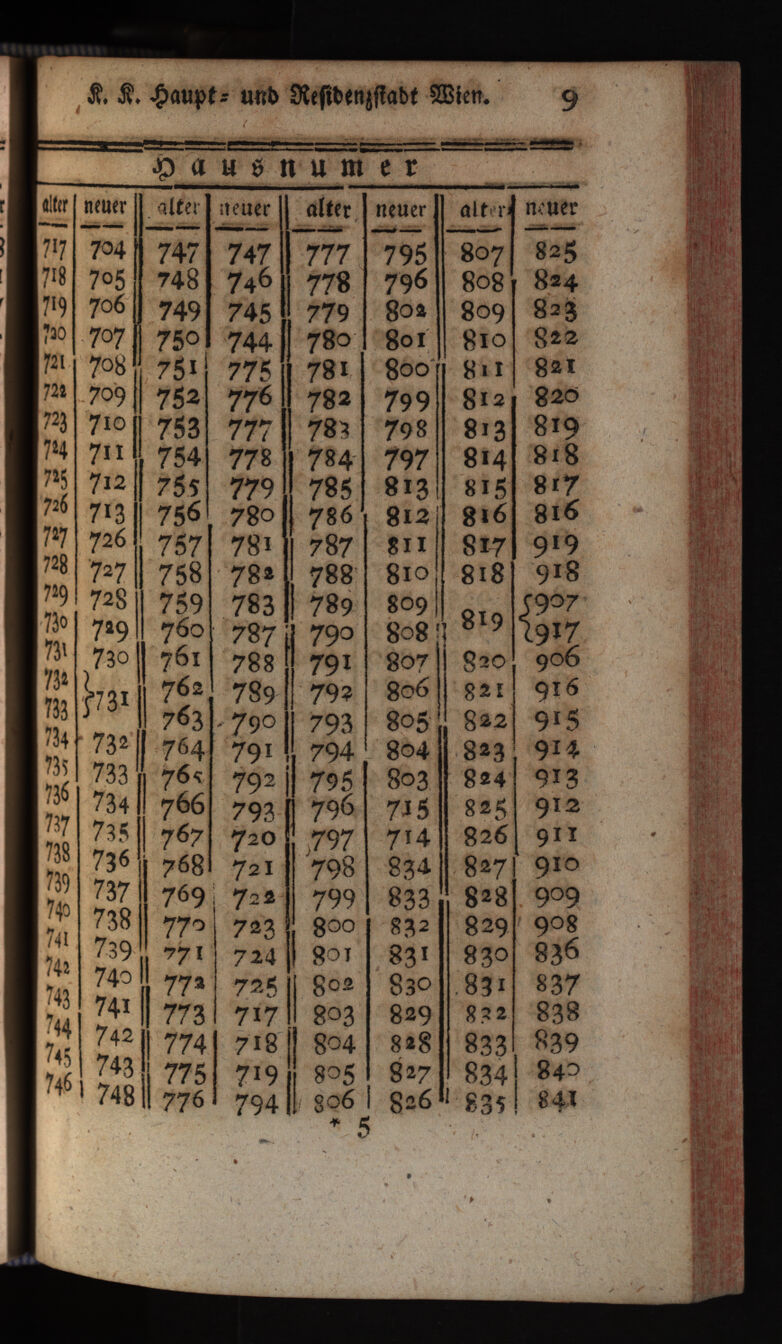 K. K. Haupt- und Residenzstadt Wien. 9
Hausnumer
alter neuer alter neuer alter neuer alter neuer
717 704 747 747 777 795 807 825
718 705 748 746 778 796 808 824
719 706 749 745 779 802 809 823
720 707 750 744 780 801 810 822
721 708 751 775 781 800 811 821
722 709 752 776 782 799 812 820
723 710 753 777 783 798 813 819
724 711 754 778 784 797 814 818
725 712 755 779 785 813 815 817
726 713 756 780 786 812 816 816
727 726 757 781 787 811 817 919
728 727 758 782 788 810 818 918
729 728 759 783 789 809 819 {907
730 729 760 787 790 808 {917
731 730 761 788 791 807 820 906
732 }731 762 789 792 806 821 916
733 763 790 793 805 822 915
734 732 764 791 794 804 823 914
735 733 765 792 795 803 824 913
736 734 766 793 796 715 825 912
737 735 767 720 797 714 826 911
738 736 768 721 798 834 827 910
739 737 769 722 799 833 828 909
740 738 770 723 800 832 829 908
741 739 771 724 801 831 830 836
742 740 772 725 802 830 831 837
743 741 773 717 803 829 832 838
744 742 774 718 804 828 833 839
745 743 775 719 805 827 834 840
746 748 776 794 806 826 835 841
* 5